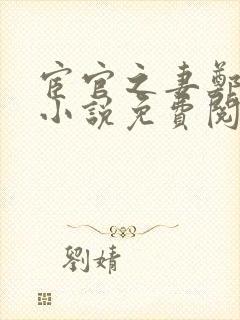 宦官之妻鄭
小說免費閱
劉婧